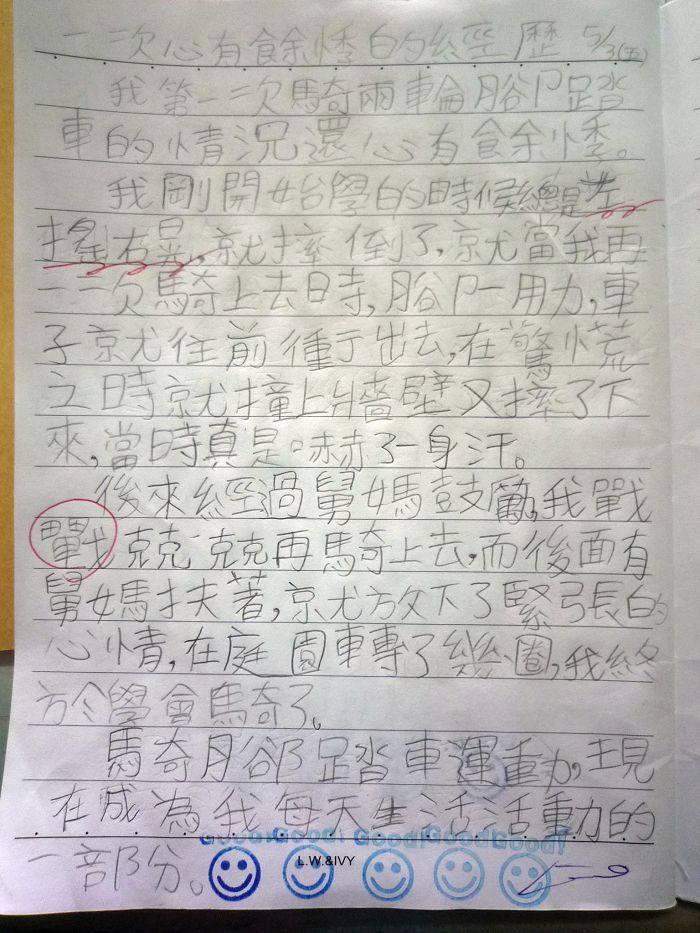 一次心有餘悸的經歷 5/3(五)
我第一次騎兩輪腳踏
車的情況還心有餘悸。
我剛開始學的時候總是左
搖右晃,就摔倒了,就當我再
一次騎上去時,腳一用力,車
子就往前衝了出去,在驚慌
之時就撞上牆壁又摔了下
來,當時真是嚇了一身汗。
後來經過舅媽鼓勵,我戰
戰兢兢再騎上去,而後面有
舅媽扶著,就放下了緊張的
心情,在庭園轉了幾圈,我終
於學會騎了。
騎腳踏車運動,現
在成為我每天生活活動的
一部分。
Good! Good! Good! Good! Good!
L.W.&IVY